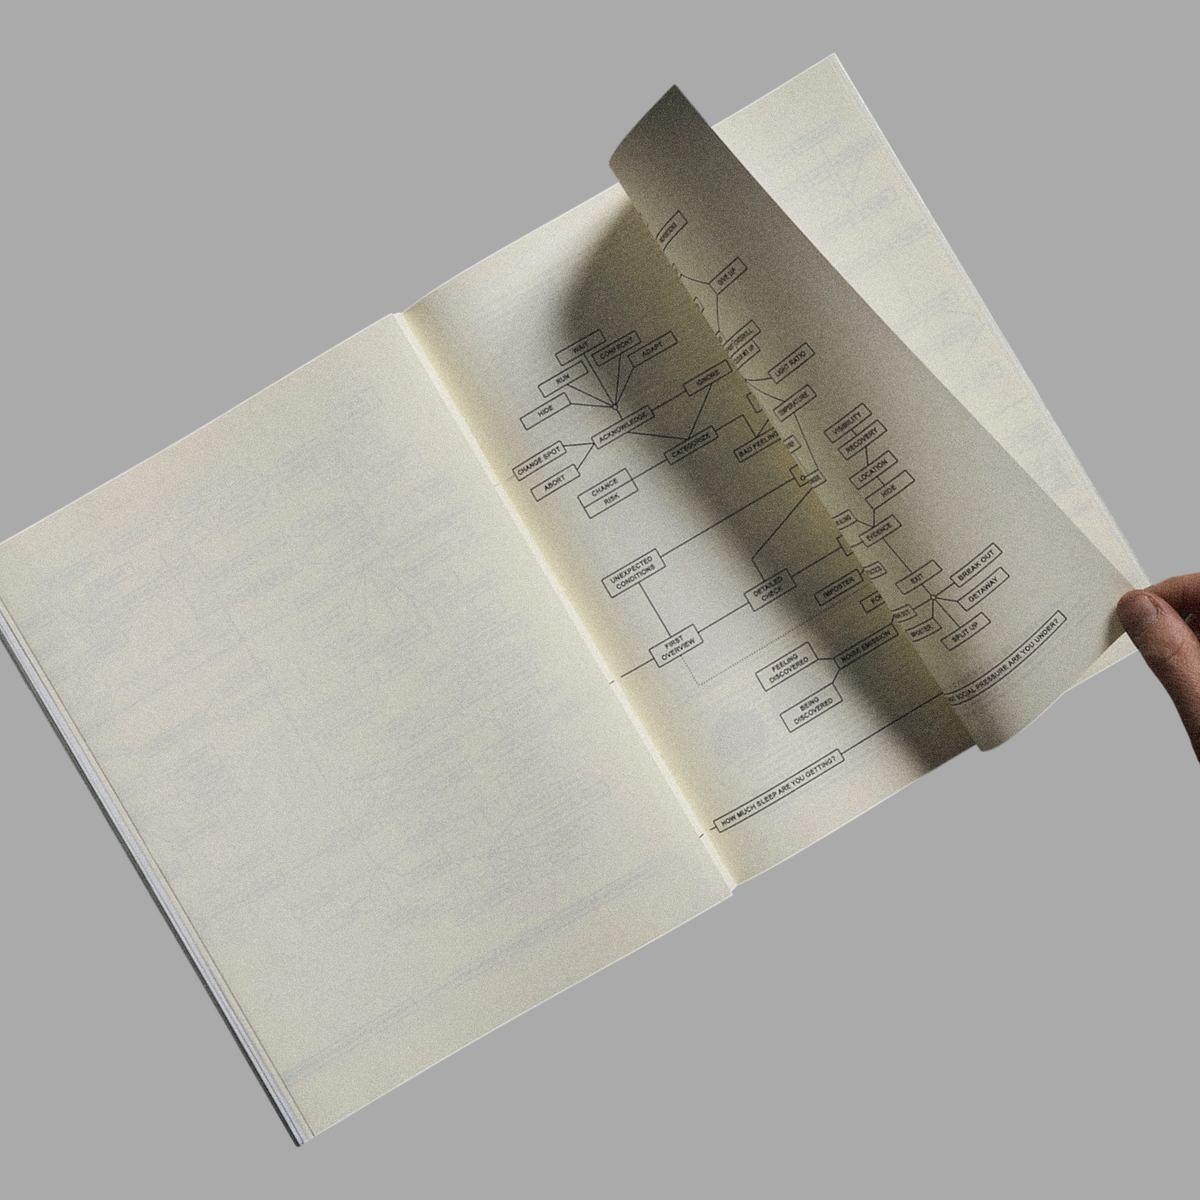 WAIT
CONFRONT
ADAPT
RUN
HIDE
IGNORE
ACKNOWLEDGE
CHANGE SPOT
ABORT
CATEGORIZE
BAD FEELING
CHANCE
RISK
UNEXPECTED
CONDITIONS
DETAILED
CHECK
FIRST
OVERVIEW
IMPOSTER
NOISE EMISSION
FEELING
DISCOVERED
BEING
DISCOVERED
HOW MUCH SLEEP ARE YOU GETTING?
GIVE UP
LIGHT RATIO
VISIBILITY
RECOVERY
LOCATION
HIDE
EVIDENCE
EXIT
BREAK OUT
GETAWAY
SPLIT UP
SOCIAL PRESSURE ARE YOU UNDER?